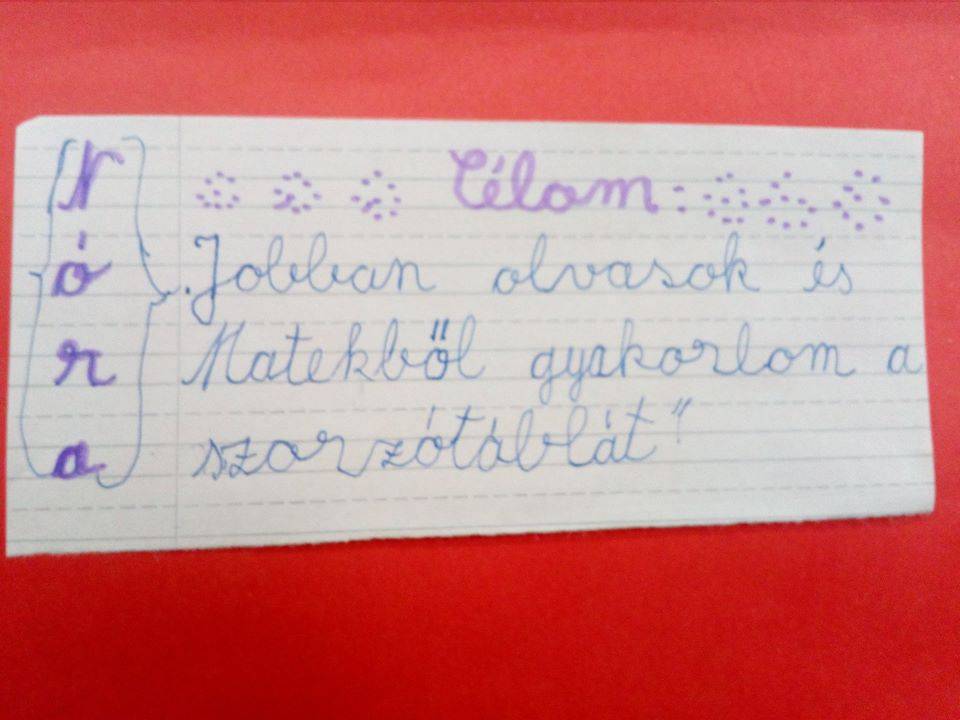 Nóra
Célom:
„Jobban olvasok és
Matekból gyakorlom a
szorzótáblát"